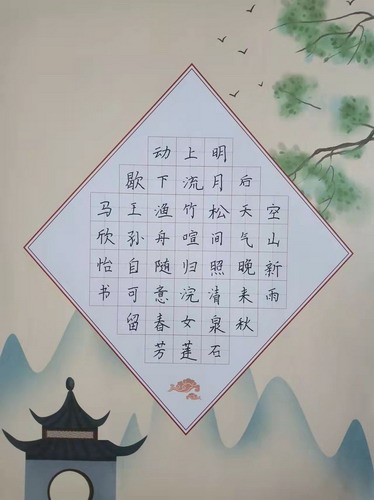 空山新雨
后天气晚来秋
明月松间照清泉石
上流竹喧归浣女莲
动下渔舟随意春芳
歇王孙自可留
马欣怡书